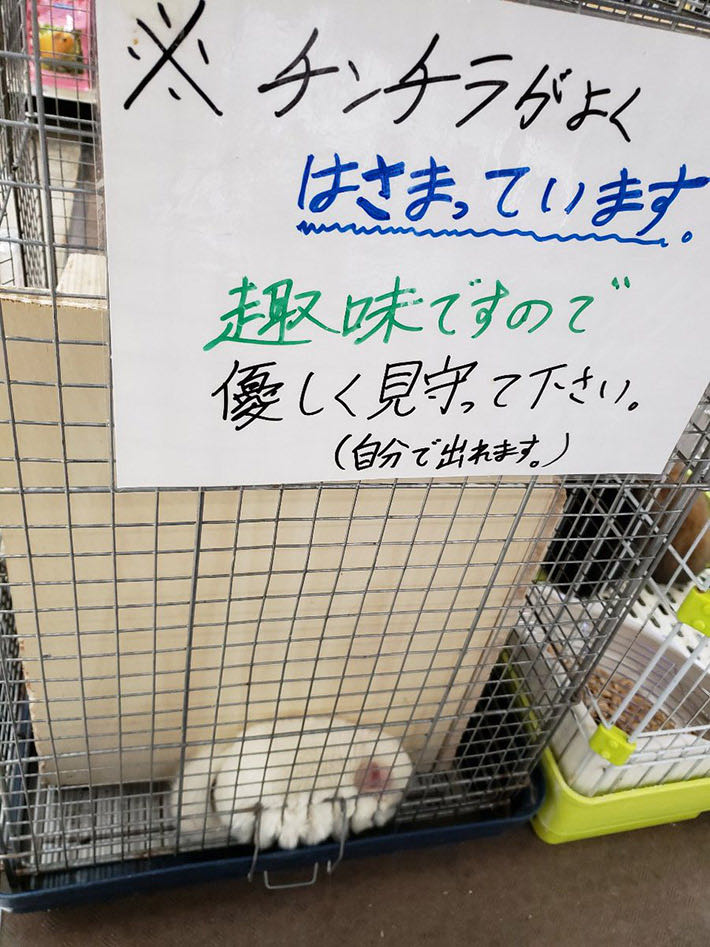 ※ チンチラがよく
はさまっています。
趣味ですので
優しく見守って下さい。
(自分で出れます。)